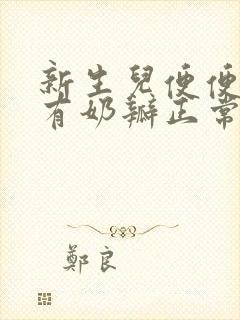 新生兒便便
有奶瓣正常
鄭良